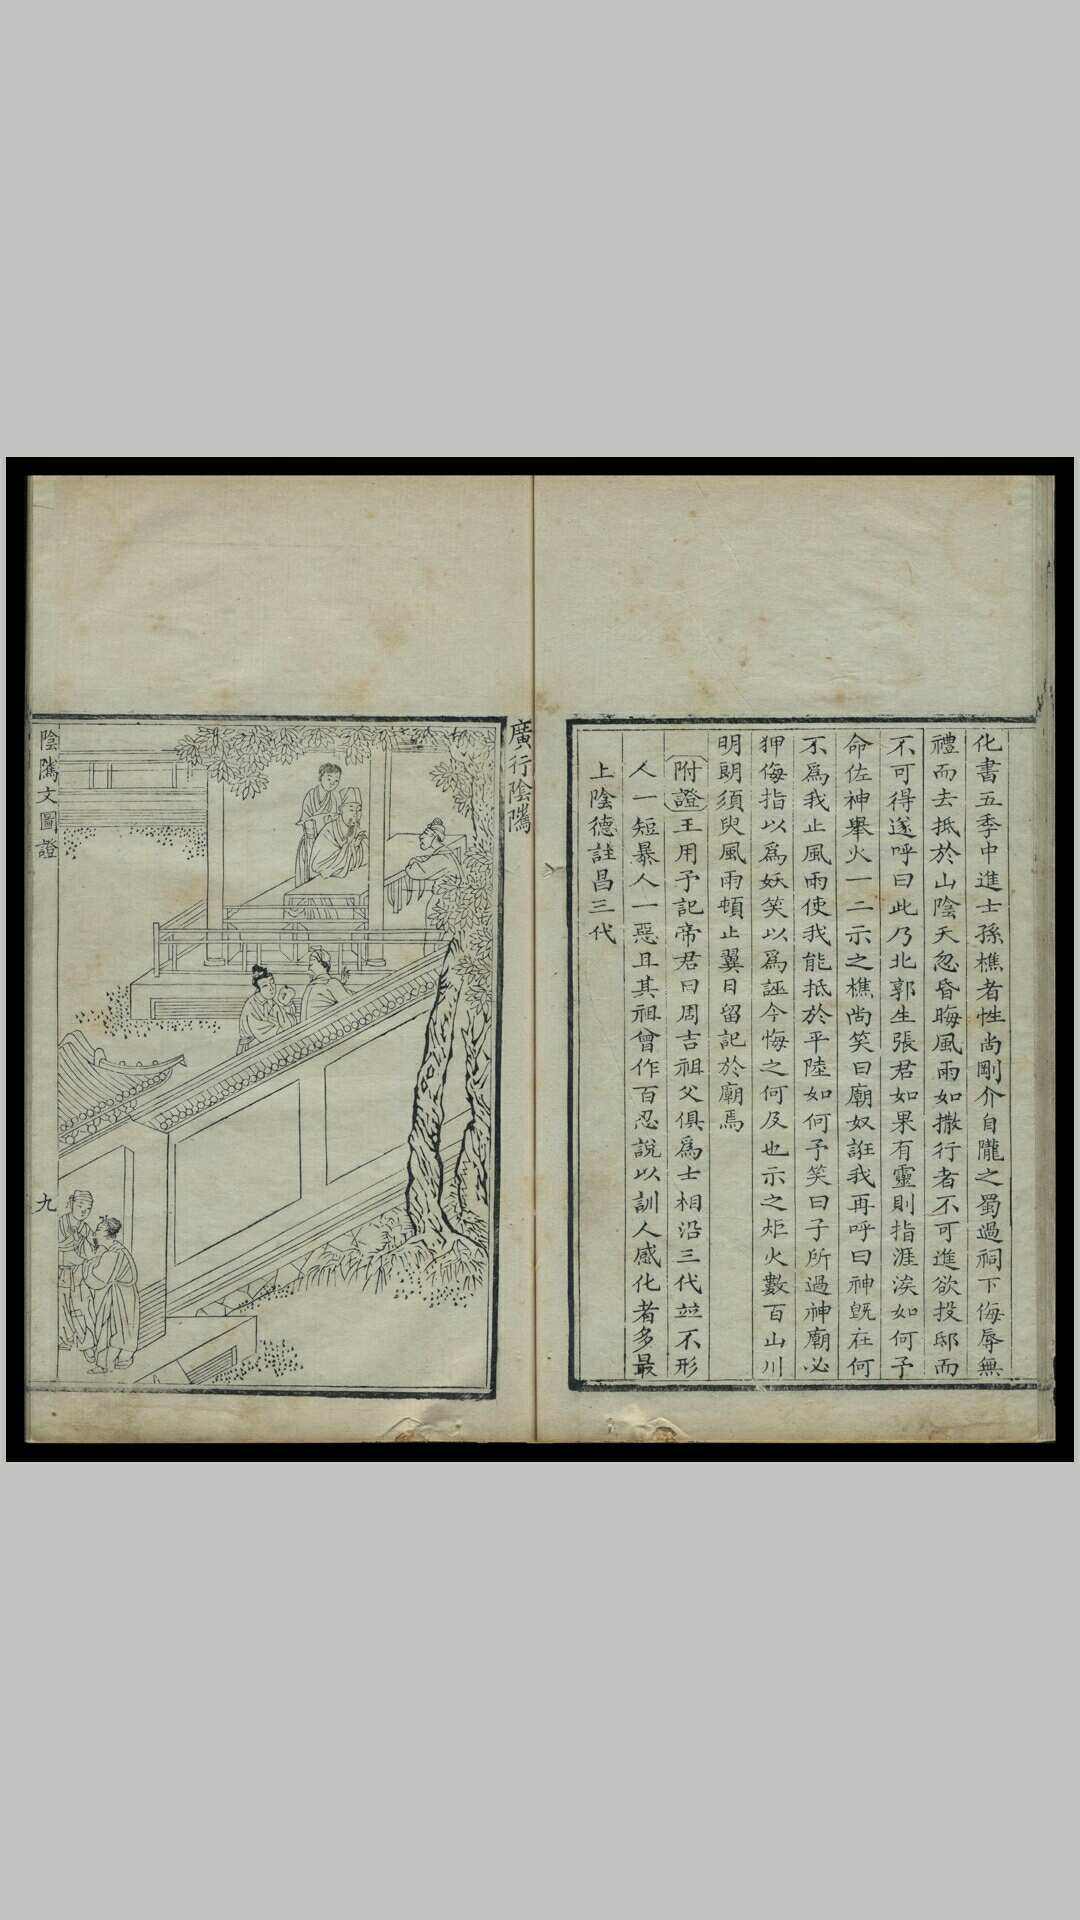 化書五季中進士孫樵者性尚剛介自隴之蜀過祠下侮辱無
禮而去抵於山陰天忽昏晦風雨如撒行者不可進欲投邸而
不可得遂呼曰此乃北郭生張君如果有靈則指涯涘如何予
命佐神舉火一二示之樵尚笑曰廟奴誑我再呼曰神旣在何
不爲我止風雨使我能抵於平陸如何予笑曰子所過神廟必
狎侮指以爲妖笑以爲誣今悔之何及也示之炬火數百山川
明朗須臾風雨頓止翼日留記於廟焉
附證王用予記帝君曰周吉祖父俱爲士相沿三代並不形
人一短暴人一惡且其祖曾作百忍說以訓人感化者多最
上陰德註昌三代
廣行陰騭
陰騭文圖證
九